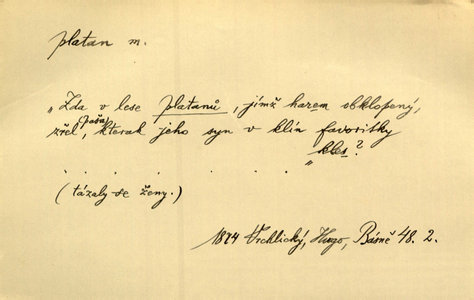 platan m.
„Zda v lese platanů, jímž harem obklopený,
zřel paša, kterak jeho syn v klín favoritky
kles?"
. . . . . . .
(tázaly se ženy.)
1874 Vrchlický, Hugo, Básně 48. 2.